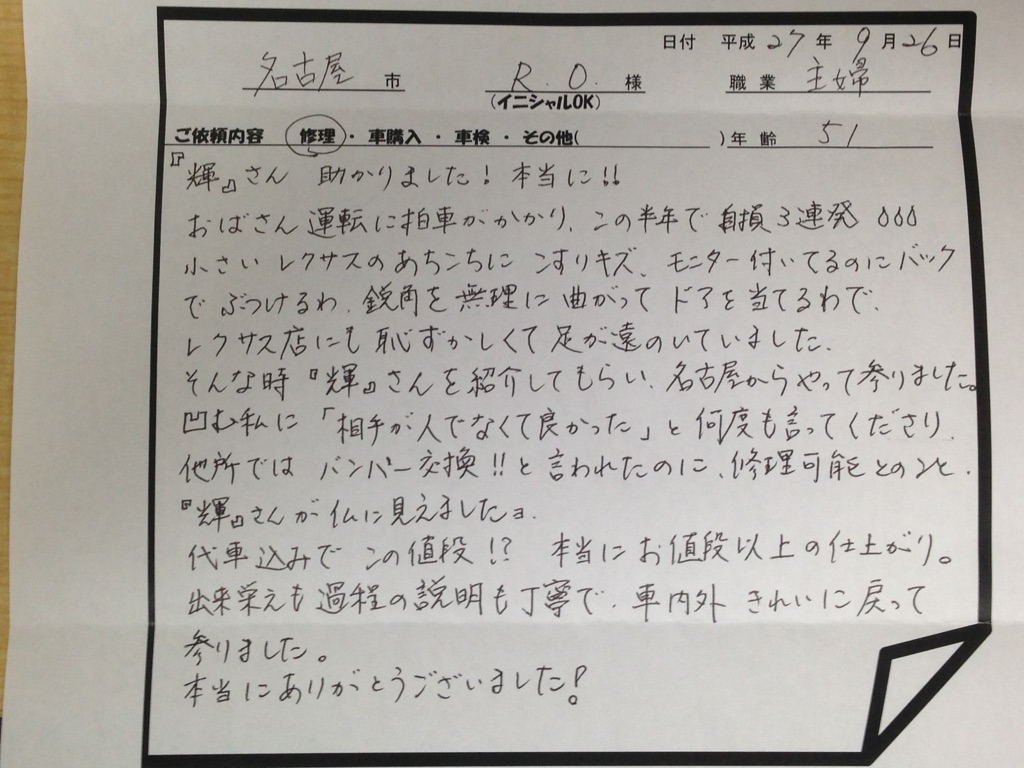 日付 平成 27 年 9 月 26 日
名古屋 市 R.O. 様 職業 主婦
(イニシャルOK)
ご依頼内容 修理・車購入・車検・その他( )年齢 51
『輝』さん 助かりました! 本当に!!
おばさん運転に拍車がかかり、この半年で自損3連発
小さいレクサスのあちこちにこすりキズ、モニター付いてるのにバック
でぶつけるわ、鋭角を無理に曲がってドアを当てるわで、
レクサス店にも恥ずかしくて足が遠のいていました、
そんな時『輝』さんを紹介してもらい、名古屋からやって参りました。
凹む私に「相手が人でなくて良かった」と何度も言ってくださり、
他所ではバンパー交換!!と言われたのに、修理可能とのこと、
『輝』さんが仏に見えましたョ、
代車込みでこの値段!? 本当にお値段以上の仕上がり。
出来栄えも過程の説明も丁寧で、車内外きれいに戻って
参りました。
本当にありがとうございました!